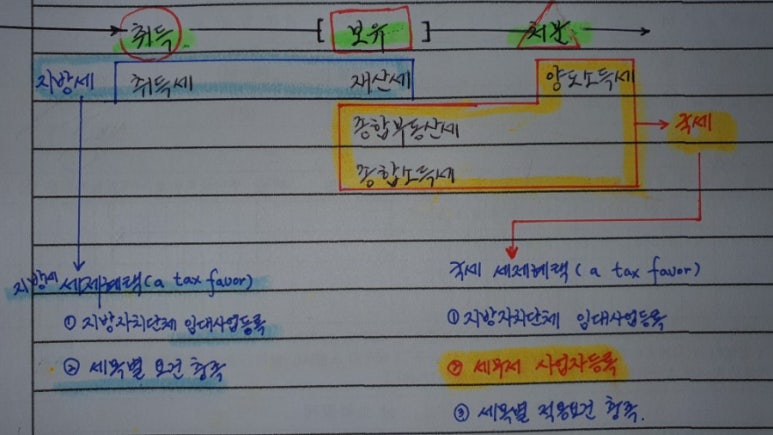 취득 [ 보유 ] 처분
지방세 취득세 재산세 양도소득세
종합부동산세 국세
종합소득세
지방세 세제혜택(a tax favor) 국세 세제혜택(a tax favor)
① 지방자치단체 임대사업등록 ① 지방자치단체 임대사업등록
② 세목별 요건 충족 ② 세무서 사업자등록
③ 세목별 적용요건 충족.